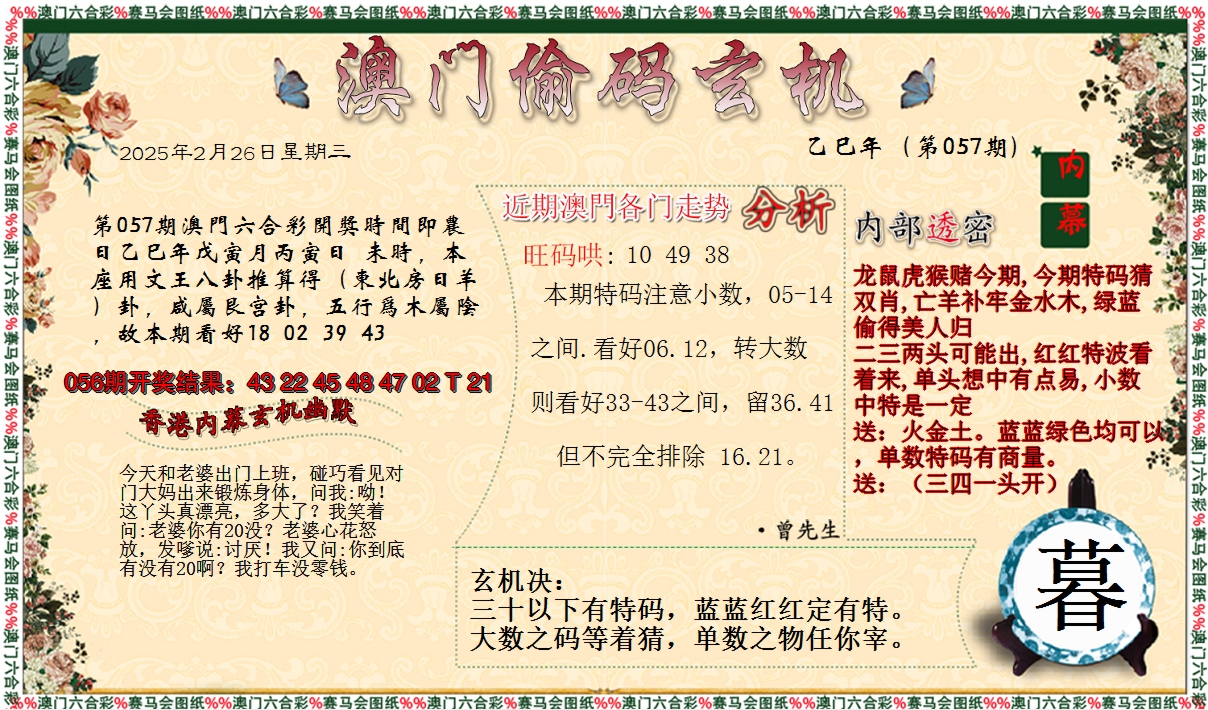 %%澳门六合彩%赛马会图纸%%澳门六合彩%赛马会图纸%%澳门六合彩%赛马会图纸%%澳门六合彩%赛马会图纸%%澳门六合彩%赛马会图纸%%澳门六合彩%赛马会图纸%%
澳门偷码玄机
2025年2月26日星期三
乙巳年（第057期）
第057期澳門六合彩開獎時間即農
日乙巳年戊寅月丙寅日 未時，本
座用文王八卦推算得（東北房日羊
）卦，咸屬艮宫卦，五行爲木屬陰
，故本期看好18 02 39 43
056期开奖结果：43 22 45 48 47 02 T 21
香港内幕玄机幽默
今天和老婆出门上班，碰巧看见对
门大妈出来锻炼身体，问我:呦！
这丫头真漂亮，多大了？我笑着
问:老婆你有20没？老婆心花怒
放，发嗲说:讨厌！我又问:你到底
有没有20啊？我打车没零钱。
近期澳門各门走势 分析
旺码哄: 10 49 38
本期特码注意小数，05-14
之间.看好06.12，转大数
则看好33-43之间，留36.41
但不完全排除 16.21。
·曾先生
玄机决：
三十以下有特码，蓝蓝红红定有特。
大数之码等着猜，单数之物任你宰。
内幕
内部透密
龙鼠虎猴赌今期,今期特码猜
双肖,亡羊补牢金水木,绿蓝
偷得美人归
二三两头可能出,红红特波看
着来,单头想中有点易,小数
中特是一定
送：火金土。蓝蓝绿色均可以
，单数特码有商量。
送：（三四一头开）
暮
%%澳门六合彩%赛马会图纸%%澳门六合彩%赛马会图纸%%澳门六合彩%赛马会图纸%%澳门六合彩%赛马会图纸%%澳门六合彩%赛马会图纸%%澳门六合彩%赛马会图纸%%